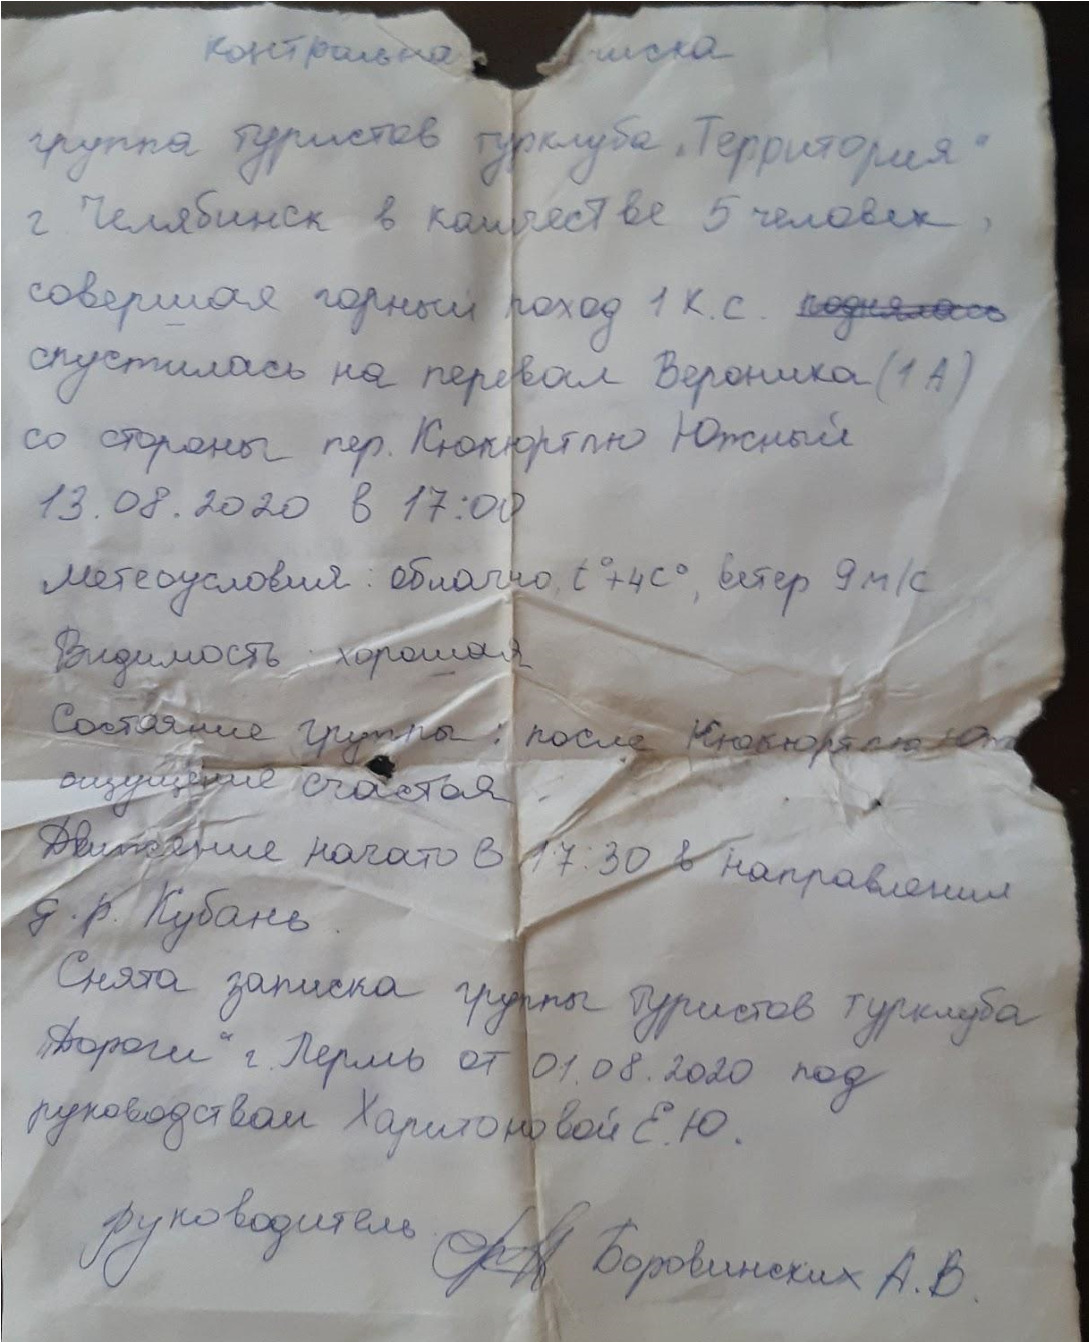 контрольна иска
группа туристов турклуба „Территория“
г Челябинск в количестве 5 человек,
совершая горный поход 1 к.с. поднялась
спустилась на перевал Вероника (1А)
со стороны пер. Кюкюртлю Южный
13.08.2020 в 17:00
Метеоусловия: облачно, t°+4С°, ветер 9 м/с
Видимость хорошая
Состояние группы: после Кюкюртлю Юж
ощущение счастья
Движение начато в 17:30 в направлении
д.р. Кубань.
Снята записка группы туристов турклуба
„Дороги“ г. Пермь от 01.08.2020 под
руководством Харитоновой Е.Ю.
руководитель Боровинских А.В.